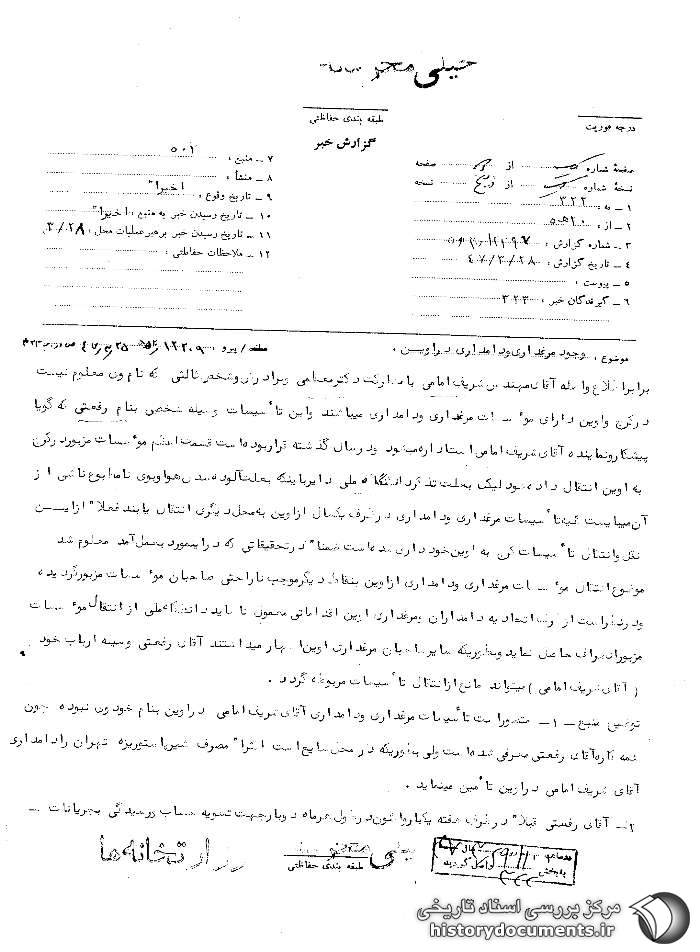 خیلی محرمانه
طبقه بندی حفاظتی
گزارش خبر
درجه فوریت
صفحهٔ شماره یک از صفحه
نسخهٔ شماره یک از پنج نسخه
۱ ـ به : ۳۲۲
۲ ـ از : ۲۰ ه ۵
۳ ـ شماره گزارش :
۴ ـ تاریخ گزارش : ۴۷/۳/۲۸
۵ ـ پیوست :
۶ ـ گیرندگان خبر : ۳۲۳
۷ ـ منبع : ۵۰۱
۸ ـ منشأ :
۹ ـ تاریخ وقوع : اخیرا"
۱۰ ـ تاریخ رسیدن خبر به منبع : اخیرا"
۱۱ ـ تاریخ رسیدن خبر برهبر عملیات محل : ۳/۲۸
۱۲ ـ ملاحظات حفاظتی :
موضوع : وجود مرغداری ودامداری دراوین . عطف / پیرو
برابر اطلاع واصله آقای مهندس شریف امامی با مشارکت دکتر معظمی وبرادرش وشخص ثالثی که نام ون معلوم نیست
درکرج واوین دارای مؤسسات مرغداری ودامداری میباشند واین تأسیسات وسیله شخص بنام رفعتی که گویا
پیشکار ونماینده آقای شریف امامی است اداره میشود ودر سال گذشته قرار بوده است قسمت اعظم مؤسسات مزبور درکن
به اوین انتقال داده شود لیکن بعلت تذکر دانشگاه ملی دایر باینکه بعلت آلوده شدن هوا وبوی نامطبوع ناشی از
آن میبایست کلیه تأسیسات مرغداری ودامداری درظرف یکسال ازاوین به محل دیگری انتقال یابند فعلا" ازایـــن
نقل وانتقال تأسیسات کن به اوین خودداری شده است ضمنا" درتحقیقاتی که دراینمورد بعمل آمد معلوم شد
موضوع انتقال مؤسسات مرغداری ودامداری ازاوین بنقاط دیگر موجب ناراحتی صاحبان مؤسسات مزبور گردیده
ودرنظر است از طرف اتحادیه دامداران ومرغداری اوین اقداماتی معمول تا شاید دانشگاه ملی از انتقال مؤسسات
مزبور انصراف حاصل نماید وبطوریکه سایر صاحبان مرغداری اوین اظهار میداشتند آقای رفعتی وسیله ارباب خود
( آقای شریف امامی ) میتواند مانع ازانتقال تأسیسات مربوطه گردد .
توضیح منبع ـ ۱ـ متصور است تأسیسات مرغداری ودامداری آقای شریف امامی دراوین بنام خودون نبوده چون
همه کاره آقای رفعتی معرفی شده است ولی بطوریکه در محل شایع است اکثرا" مصرف شیر پاستوریزه تهران را دامداری
آقای شریف امامی دراوین تأمین مینماید .
۲ـ آقای رفعتی قبلا" درظرف هفته یکبار واکنون درطول هرماه دوبار جهت تسویه حساب ورسیدگی بجریانات ـ
خیلی محرمانه
طبقه بندی حفاظتی
وزارتخانه‌ها
مرکز بررسی اسناد تاریخی
historydocuments.ir